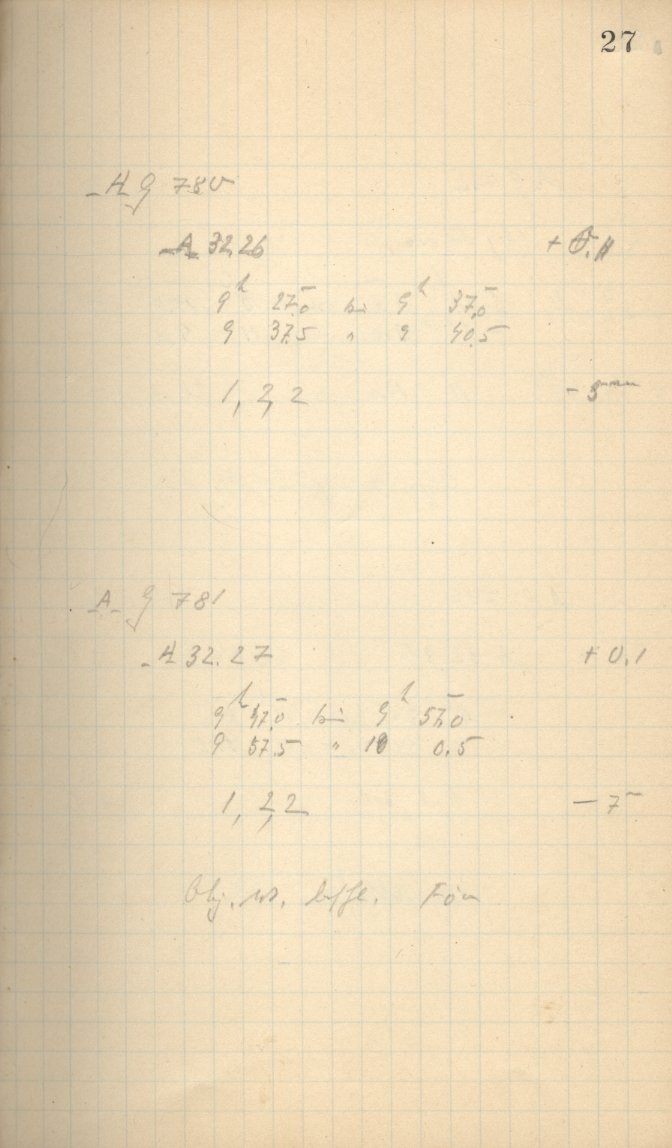 27
A G 780
A 3226 + 0.1
9h 27.0m bis 9h 37.0m
9 37.5 " 9 40.5
1, 2, 2 - 5m
A G 781
A 32.27 + 0.1
9h 47.0m bis 9h 57.0m
9 57.5 " 10 0.5
1, 2, 2 - 7m
Obj. Fön